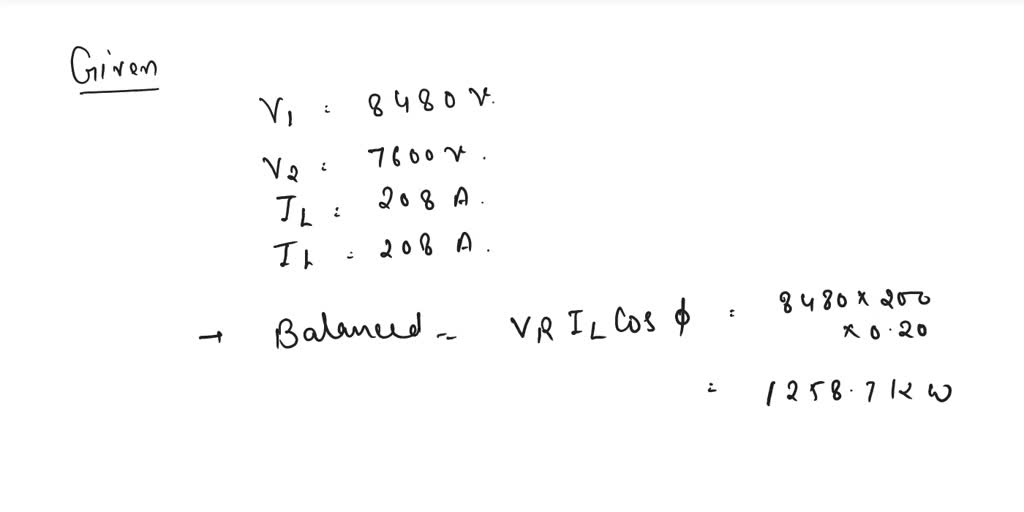 Given
V1 : 8480 v.
V2 : 7600 v.
IL : 208 A.
IL : 208 A.
→ Balanced = VR IL Cos ϕ = 8480 x 200
x 0.20
= 1258.7 kW